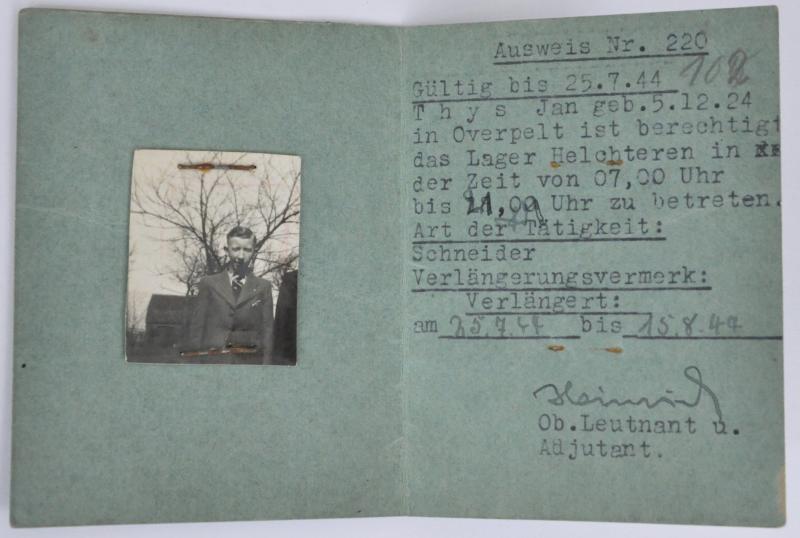 Ausweis Nr. 220
Gültig bis 25.7.44 102
T h y s Jan geb.5.12.24
in Overpelt ist berechtigt
das Lager Helchteren in
der Zeit von 07,00 Uhr
bis 21,00 Uhr zu betreten.
Art der Tätigkeit:
Schneider
Verlängerungsvermerk:
Verlängert:
am 25.7.44 bis 15.8.44
Heinrich
Ob.Leutnant u.
Adjutant.